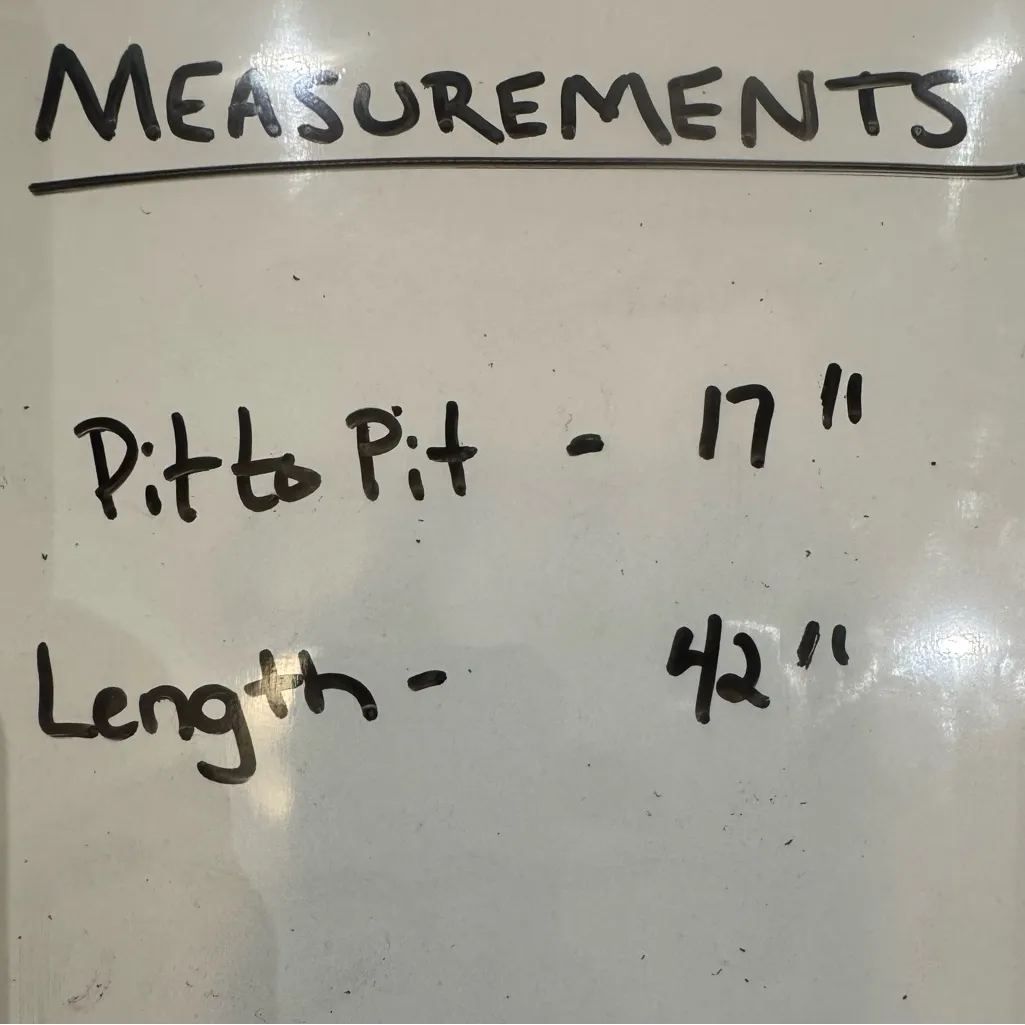 MEASUREMENTS
Pit to Pit - 17"
Length - 42"